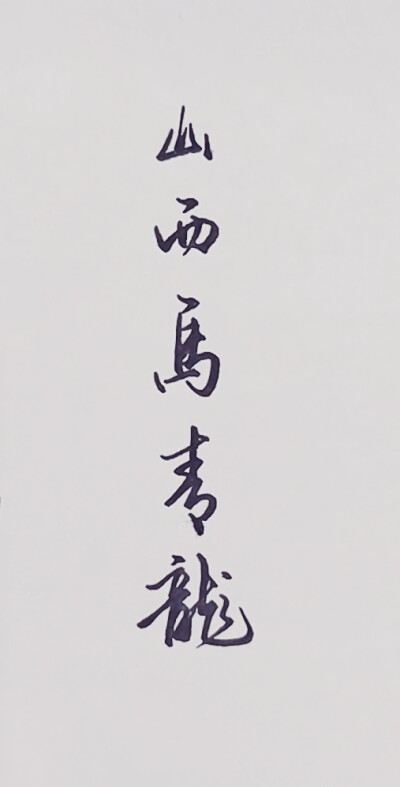 山西馬青龍